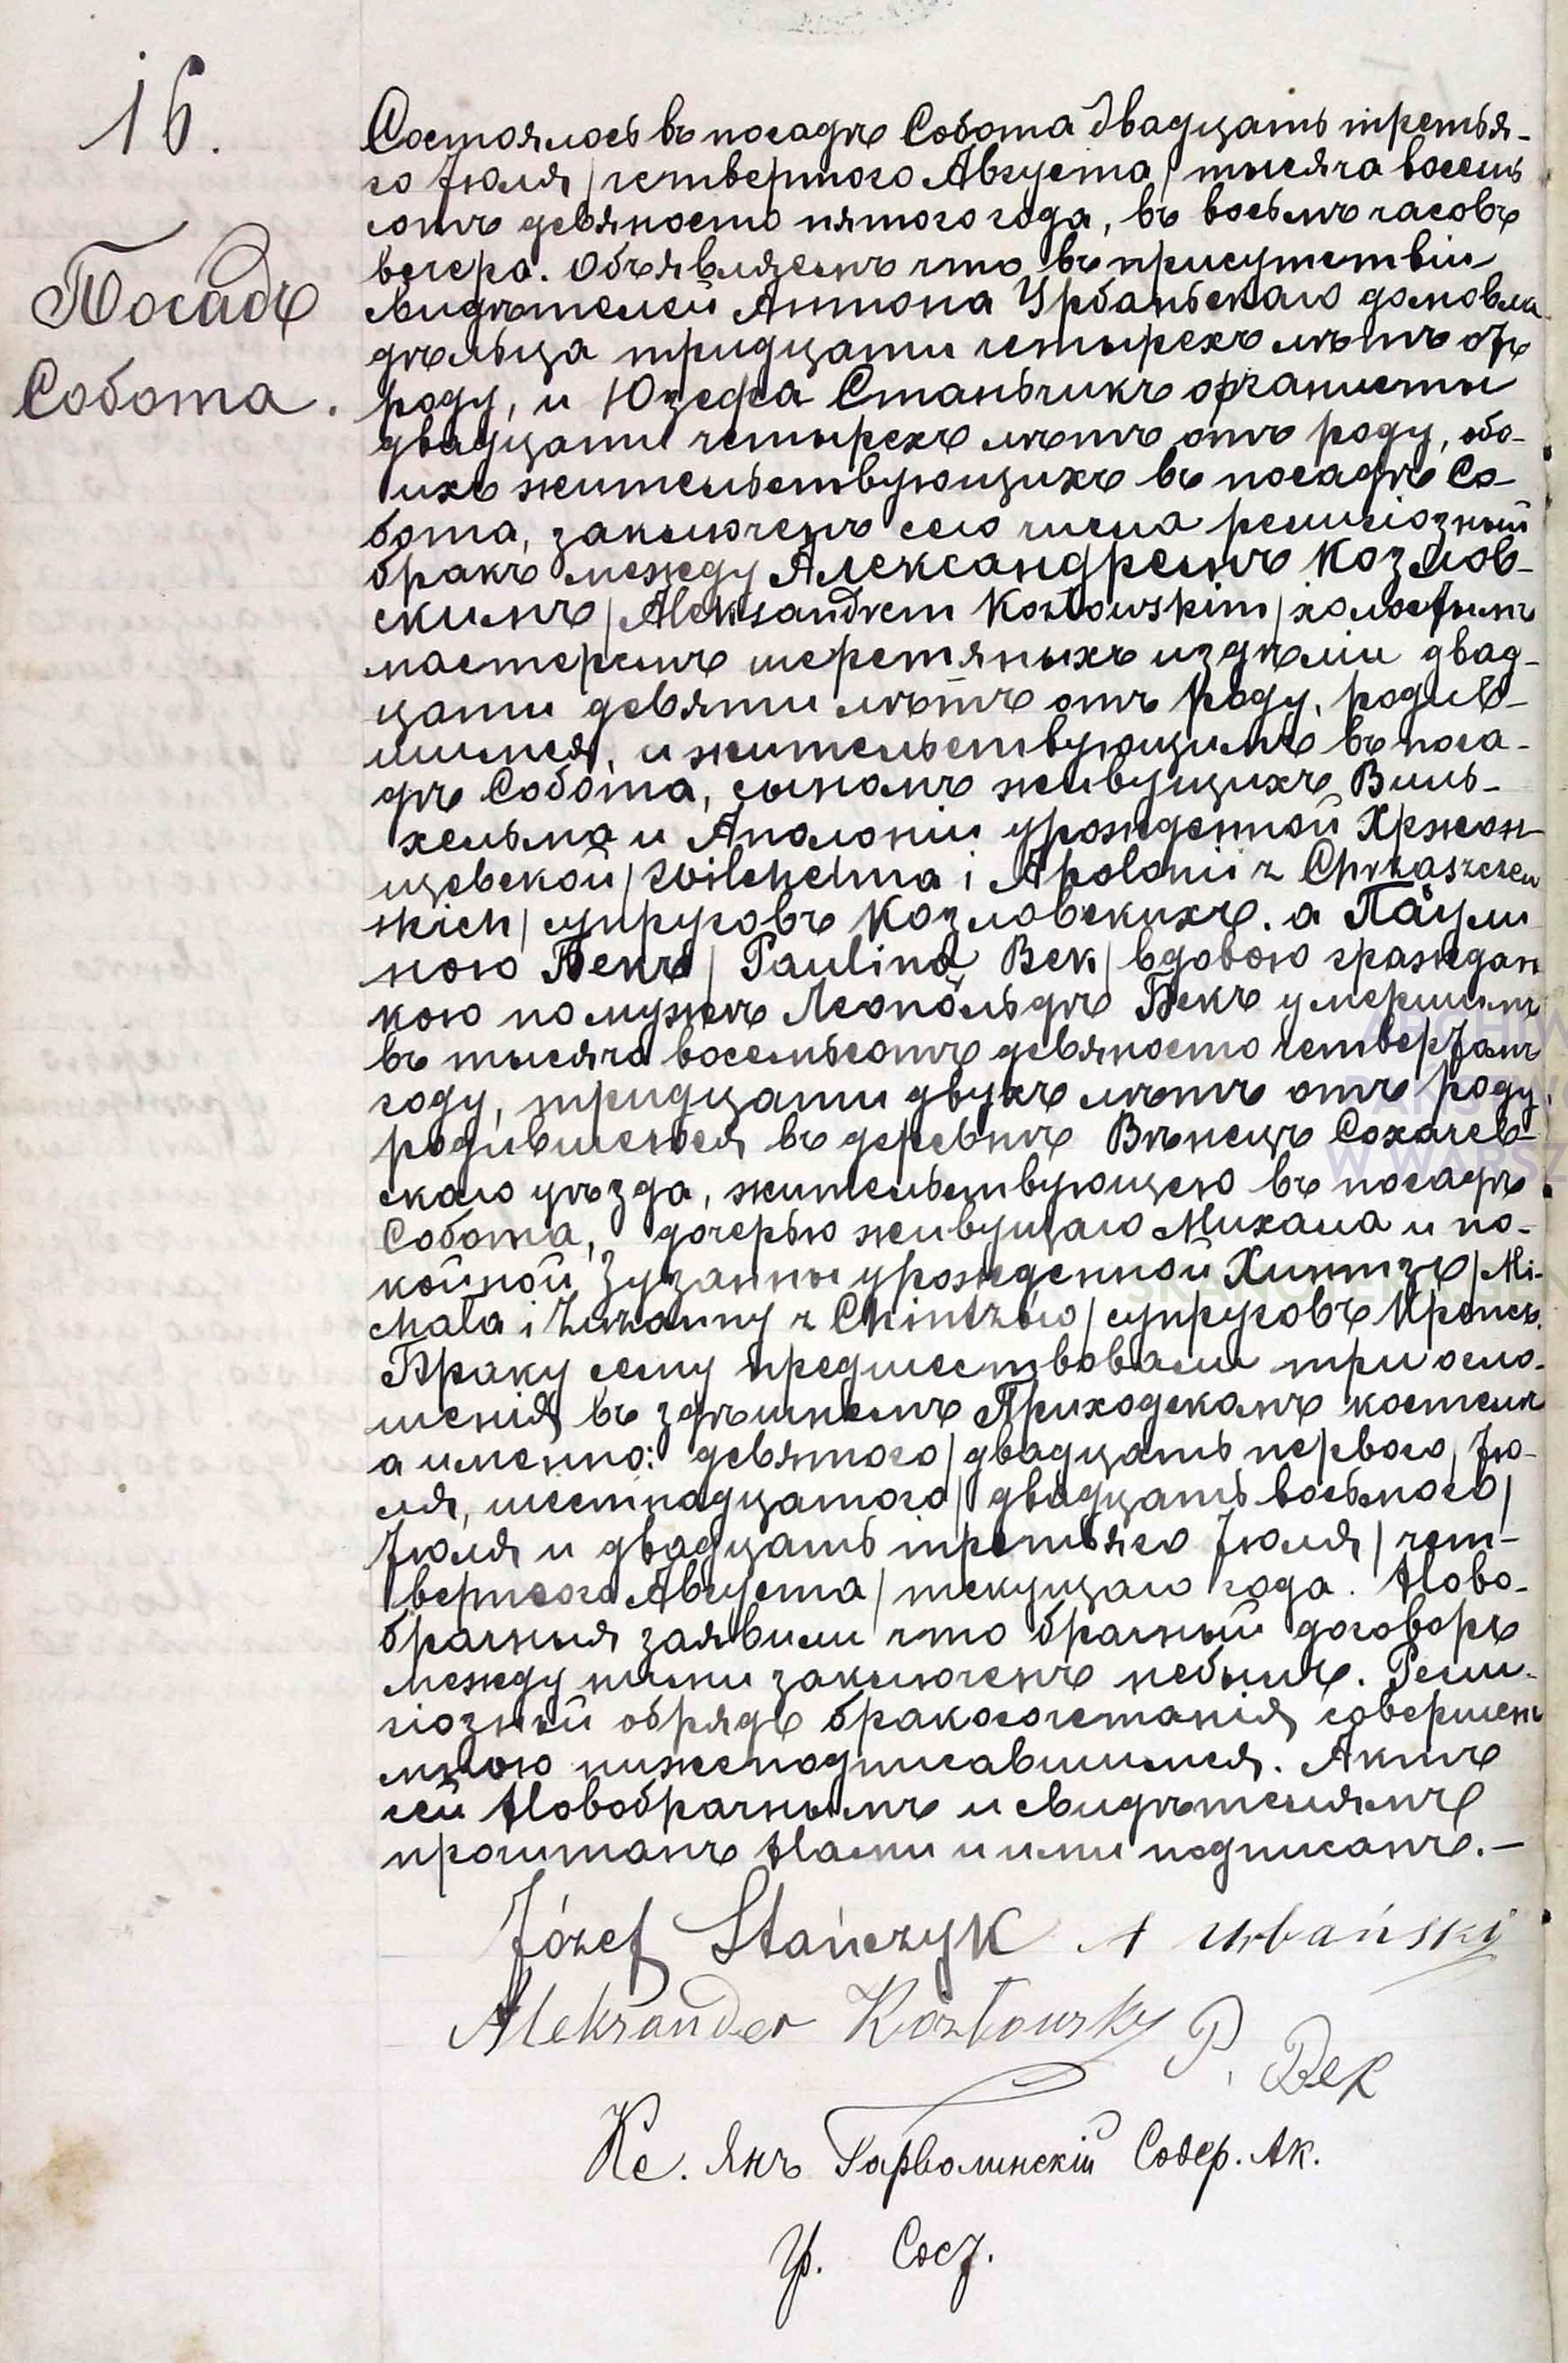 16.
Посадъ
Собота.
Состоялось въ посадѣ Собота двадцать третья-
го Іюля /четвертого Августа/ тысяча восемь
сотъ девяносто пятого года, въ восемъ часовъ
вечера. Объявляемъ что въ присутствіи
свидѣтелей Антона Урбаньскаго домовла
дѣльца тридцати четырехъ лѣтъ отъ
роду, и Юзефа Станьчикъ органисты
двадцати четырехъ лѣтъ отъ роду, обо-
ихъ жительствующихъ въ посадѣ Со-
бота, заключенъ сего числа религіозный
бракъ между Александремъ Козлов-
скимъ /Aleksandrem Kozłowskim/ холостымъ
мастеремъ шерстяныхъ издѣліи двад-
цати девяти лѣтъ отъ роду, родив-
шимся, и жительствующимъ въ поса-
дѣ Собота, сыномъ живущихъ Виль-
хельма и Аполоніи урожденной Хржон-
щевской /Wilchelma i Apolonii z Chrząszczew
skich/ супруговъ Козловскихъ. а Паули
ною Бекъ /Pauliną Bek/ вдовою граждан
кою по мужѣ Леопольдѣ Бекъ умершимъ
въ тысяча восемьсотъ девяносто четвертомъ
году, тридцати двухъ лѣтъ отъ роду,
родившеюся въ деревнѣ Вѣнецъ Сохачев-
скаго уѣзда, жительствующею въ посадѣ
Собота, дочерью живущаго Михала и по-
койной Зузанны урожденной Хинтзъ /Mi-
chała i Zuzanny z Chintzów/ супруговъ
Браку сему предшествовали три огло-
шенія въ здѣшнемъ Приходскомъ костелѣ
а именно: девятого /двадцать первого/ Ію-
ля, шестнадцатого /двадцать восьмого/
Іюля и двадцать третьяго Іюля /чет-
вертого Августа/ текущаго года. Ново-
брачныя заявили что брачный договоръ
между ними заключенъ небылъ. Рели-
гіозный обрядъ бракосочетанія совершенъ
мною нижеподписавшимся. Актъ
сей Новобрачнымъ и свидѣтелямъ
прочитанъ Нами и ими подписанъ.—
Józef Stańczyk A Urbański
Aleksander Kozłowsky P. Bek
Кс. Янъ Гарволинскій Содер. Ак.
Гр. Сост.